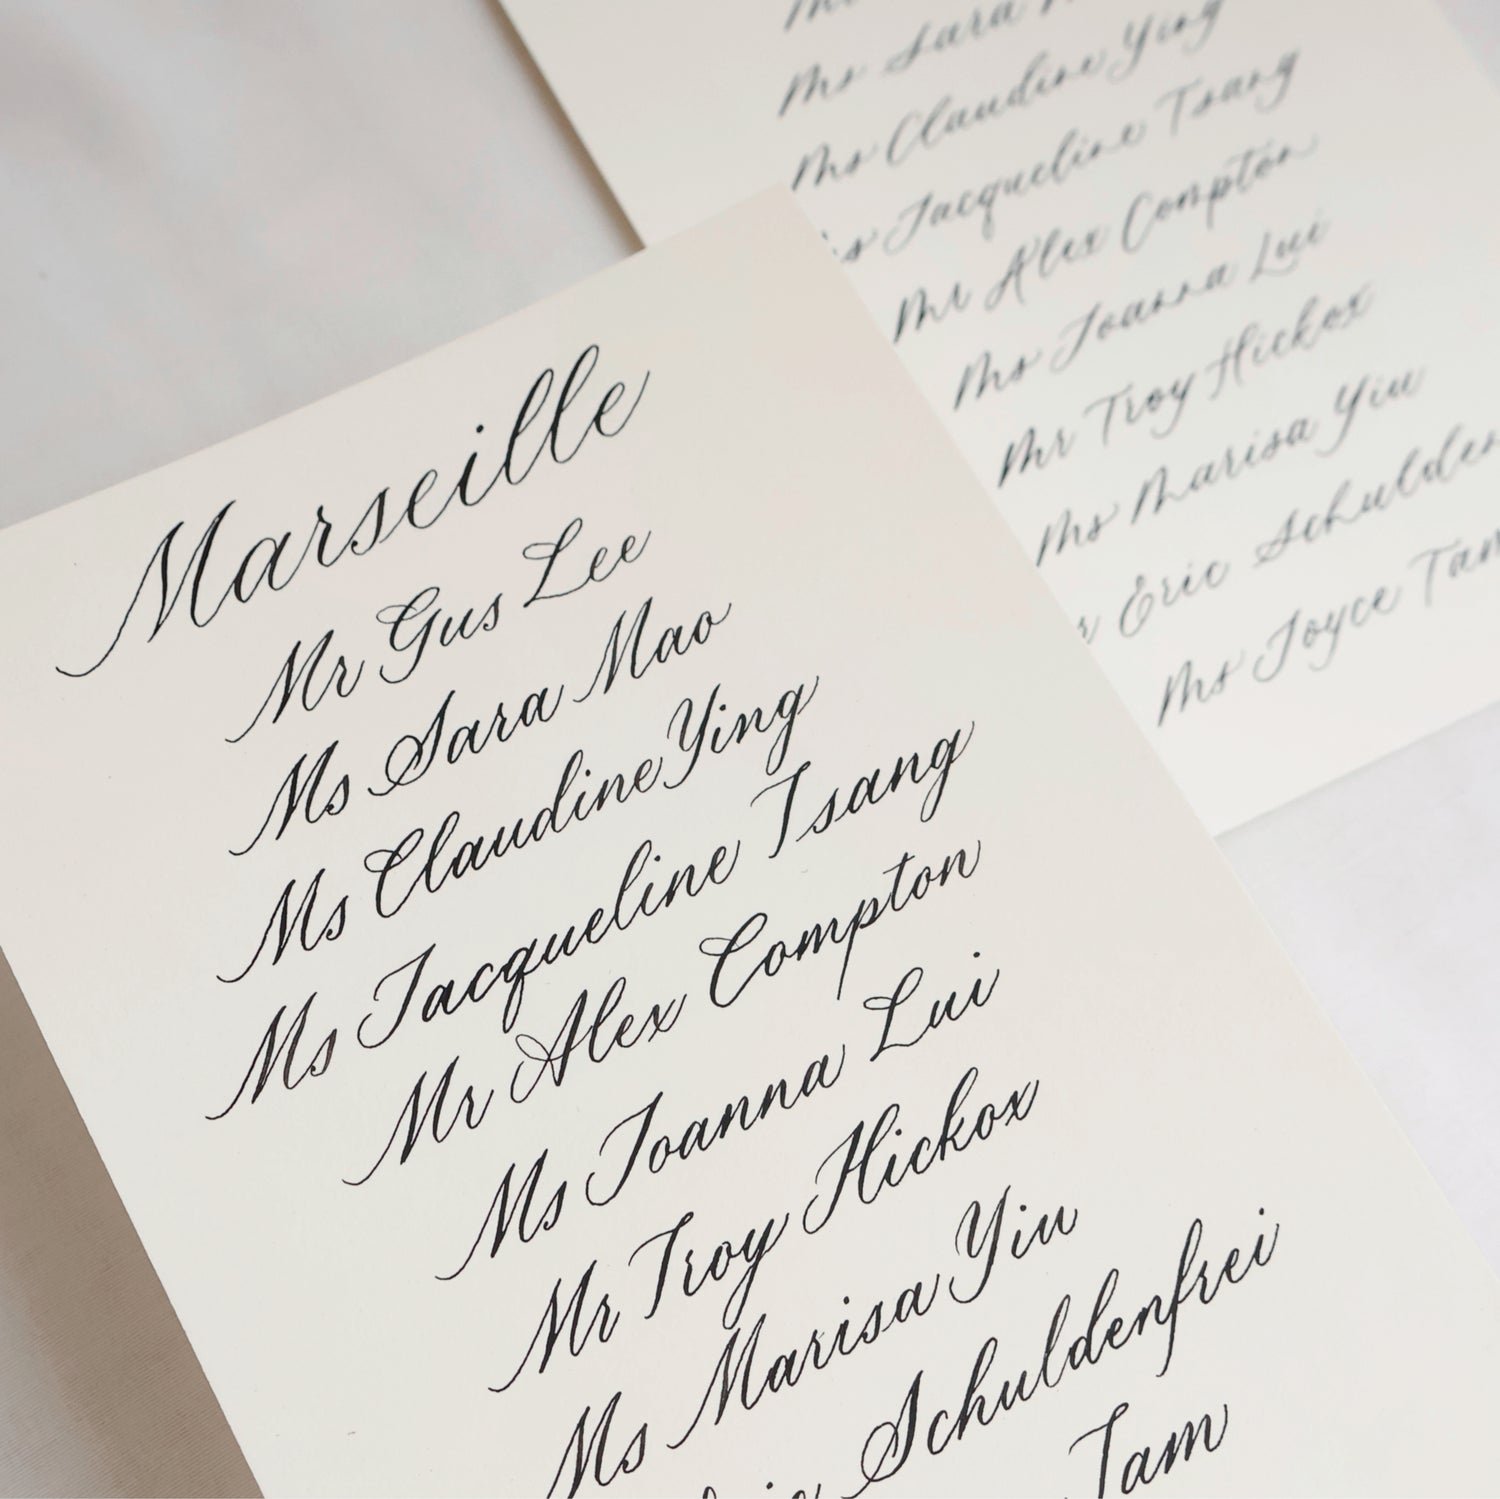 Marseille
Mr Gus Lee
Ms Sara Mao
Ms Claudine Ying
Ms Jacqueline Tsang
Mr Alex Compton
Ms Joanna Lui
Mr Troy Hickox
Ms Marisa Yiu
Schuldenfrei
Tam
Ms Sara
Ms Claudine Ying
Ms Jacqueline Tsang
Mr Alex Compton
Ms Joanna Lui
Mr Troy Hickox
Ms Marisa Yiu
Mr Eric Schulden
Ms Joyce Tam